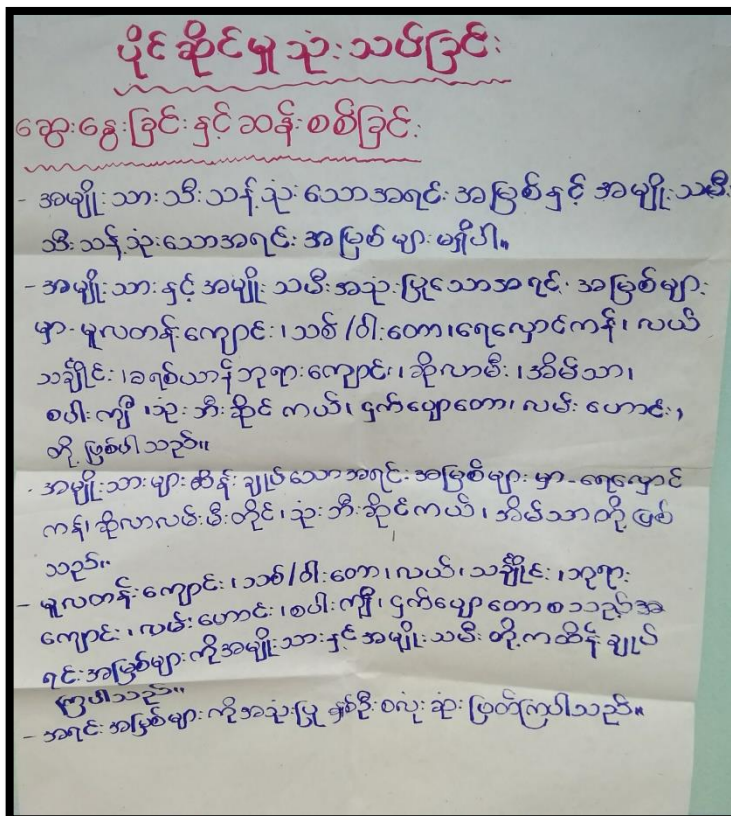 ပိုင်ဆိုင်မှုသုံးသပ်ခြင်း
ဆွေးနွေးခြင်းနှင့်ဆန်းစစ်ခြင်း
- အမျိုးသားသီးသန့်သုံးသောအရင်းအမြစ်နှင့် အမျိုးသမီး
သီးသန့်သုံးသောအရင်းအမြစ်များမရှိပါ။
- အမျိုးသားနှင့်အမျိုးသမီးအသုံးပြုသောအရင်းအမြစ်များ
မှာ-မူလတန်းကျောင်း၊သစ်/ဝါးတော၊ရေလှောင်ကန်၊လယ်
သင်္ချိုင်း၊ခရစ်ယာန်ဘုရားကျောင်း၊ဆိုလာမီး၊အိမ်သာ၊
စပါးကျီ၊သုံးဘီးဆိုင်ကယ်၊ငှက်ပျောတော၊လမ်းဟောင်း၊
တို့ဖြစ်ပါသည်။
- အမျိုးသားများထိန်းချုပ်သောအရင်းအမြစ်များမှာ-ရေလှောင်
ကန်၊ဆိုလာလမ်းမီးတိုင်၊သုံးဘီးဆိုင်ကယ်၊အိမ်သာတို့ဖြစ်
သည်။
- မူလတန်းကျောင်း၊သစ်/ဝါးတော၊လယ်၊သင်္ချိုင်း၊ဘုရား
ကျောင်း၊လမ်းဟောင်း၊စပါးကျီ၊ငှက်ပျောတောစသည့်အ
ရင်းအမြစ်များကိုအမျိုးသားနှင့်အမျိုးသမီးတို့ကထိန်းချုပ်
ကြပါသည်။
- အရင်းအမြစ်များကိုအသုံးပြုနှစ်ဦးစလုံးဆုံးဖြတ်ကြပါသည်။